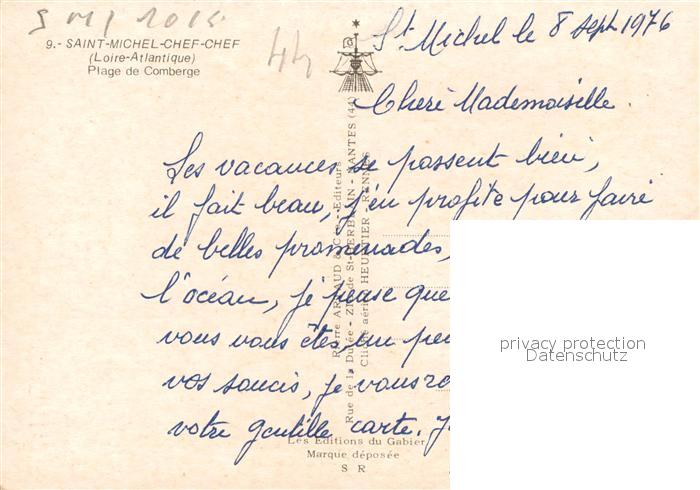 44
9.- SAINT-MICHEL-CHEF-CHEF
(Loire-Atlantique)
Plage de Comberge
St Michel le 8 sept 1976
Cheré Mademoiselle.
Les vacances se passent bien,
il fait beau, j'en profite pour faire
de belles promenades,
l'océan, je pense que
vous vous êtes, un peu
vos soucis, je vous
votre gentille carte.
Pierre ARTAUD & Cie - Editeurs
Rue de la Durée - ZI de St-HERBLAIN - NANTES (44)
Cliché aérien HEURTIER - RENNES
Les Editions du Gabier
Marque déposée
S R
privacy protection
Datenschutz